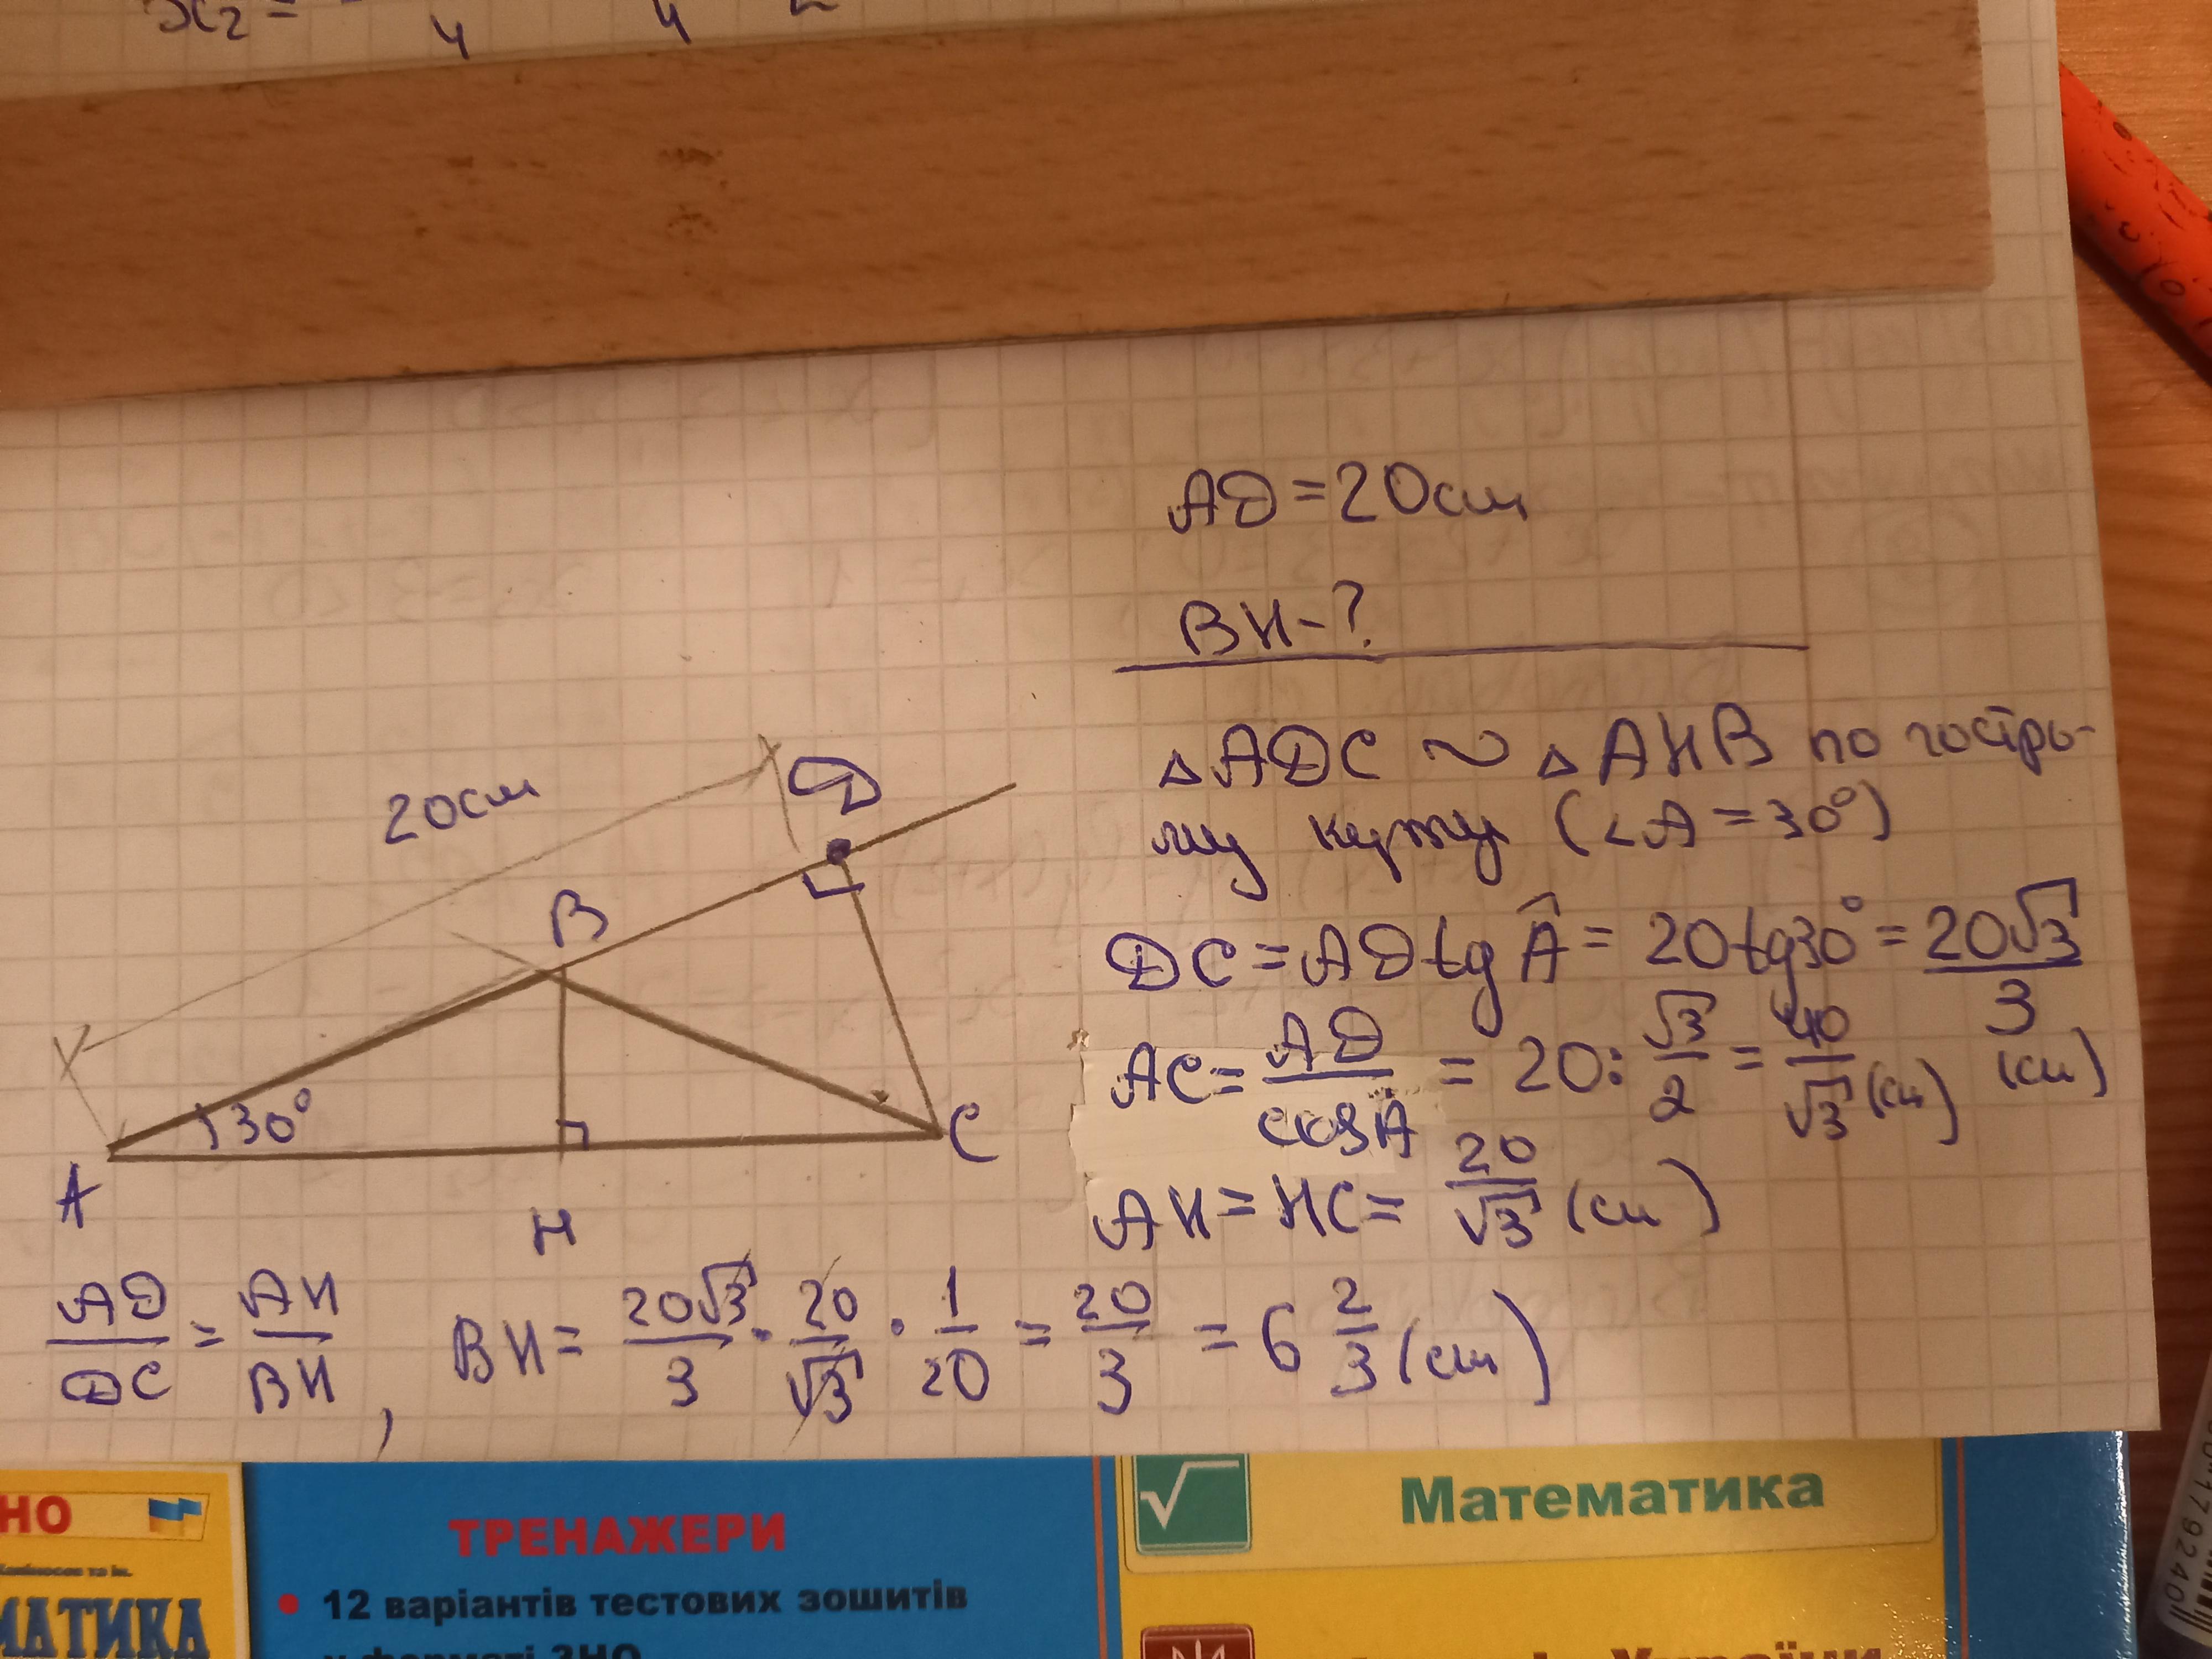 x₂ =
4 4
AD = 20см
BH - ?
△ADC ~ △AHB по гостро-
му куту (∠A = 30°)
DC = AD tg Â = 20 tg30° = 20√3/3 (см)
AC = AD/cosÂ = 20 : √3/2 = 40/√3 (см)
AH = HC = 20/√3 (см)
20см
D
B
30°
A
H
C
AD/DC = AH/BH , BH = 20√3/3 · 20/√3 · 1/20 = 20/3 = 6 2/3 (см)
НО
МАТИКА
ТРЕНАЖЕРИ
• 12 варіантів тестових зошитів
у форматі ЗНО
√
Математика
України